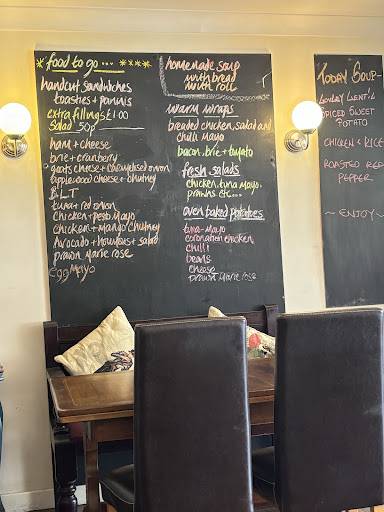 * food to go ... ****
handcut sandwiches
toasties + paninis
extra fillings £1.00
Salad 50p
ham + cheese
brie + cranberry
goats cheese + caramelised onion
applewood cheese + chutney
B.L.T
tuna + red onion
Chicken + pesto mayo
chicken + mango chutney
Avocado + houmous + salad
prawn Marie rose
Egg Mayo
homemade soup
with bread
with roll
warm wraps
breaded chicken, salad and
chilli mayo
bacon, brie + tomato
fresh salads
chicken, tuna mayo,
prawns etc...
oven baked potatoes
tuna-mayo
coronation chicken
chilli
beans
cheese
prawn Marie rose
TODAY SOUP
SPICED SWEET
POTATO
CHICKEN & RICE
ROASTED RED
PEPPER
~ ENJOY ~